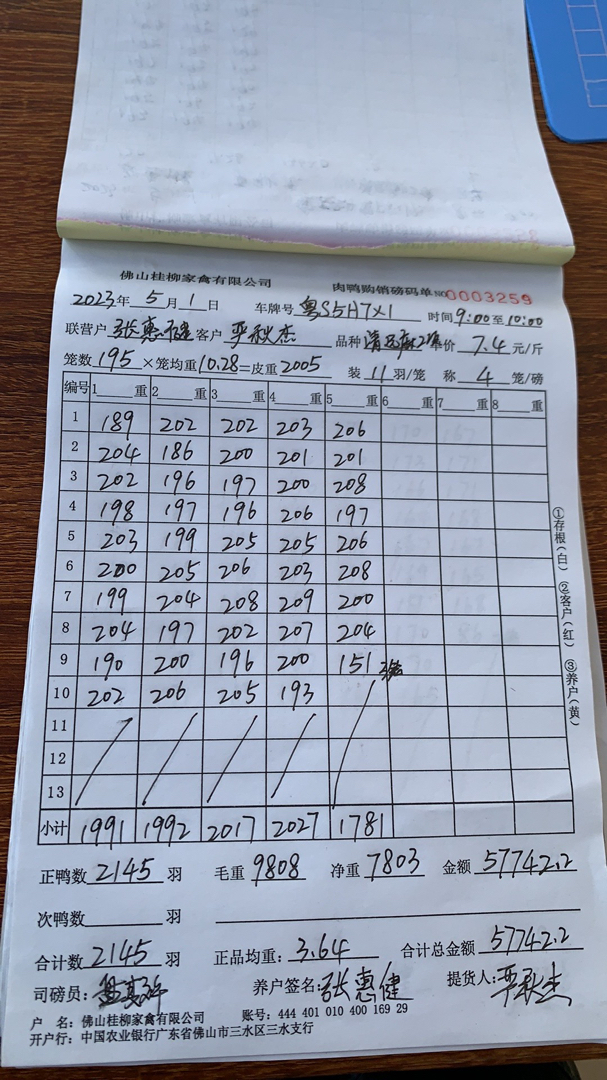 佛山桂柳家禽有限公司 肉鸭购销磅码单 NO 0003259
2023年 5月 1日 车牌号 粤S5H7X1 时间 9:00至10:00
联营户 张惠健 客户 严秋杰 品种 单价 7.4 元/斤
笼数 195 ×笼均重 10.28=皮重 2005 装 11 羽/笼 称 4 笼/磅
编号 1 重 2 重 3 重 4 重 5 重 6 重 7 重 8 重
1 189 202 202 203 206
2 204 186 200 201 201
3 202 196 197 200 208
4 198 197 196 206 197
5 203 199 205 205 206
6 200 205 206 203 208
7 199 204 208 209 200
8 204 197 202 207 204
9 190 200 196 200 151 3笼
10 202 206 205 193
11
12
13
小计 1991 1992 2017 2027 1781
①存根(白) ②客户(红) ③养户(黄)
正鸭数 2145 羽 毛重 9808 净重 7803 金额 57742.2
次鸭数 羽
合计数 2145 羽 正品均重: 3.64 合计总金额 57742.2
司磅员: 养户签名: 张惠健 提货人: 严秋杰
户 名: 佛山桂柳家禽有限公司 账号: 444 401 010 400 169 29
开户行: 中国农业银行广东省佛山市三水区三水支行